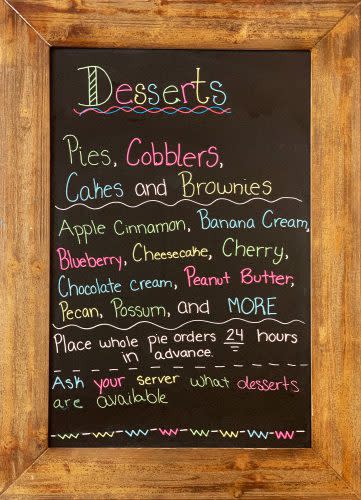 Desserts
Pies, Cobblers,
Cakes and Brownies
Apple Cinnamon, Banana Cream,
Blueberry, Cheesecake, Cherry,
Chocolate cream, Peanut Butter,
Pecan, Possum, and MORE
Place whole pie orders 24 hours
in advance.
Ask your server what desserts
are available